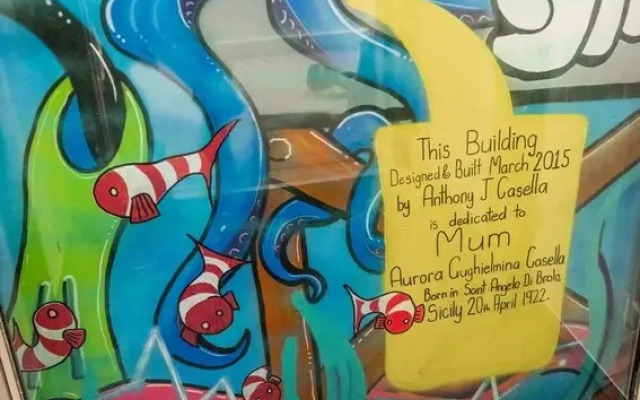 This Building
Designed & Built March 2015
by Anthony J Casella
is dedicated to
Mum
Aurora Gughielmina Casella
Born in Sant Angelo Di Brola,
Sicily 20th April 1922.